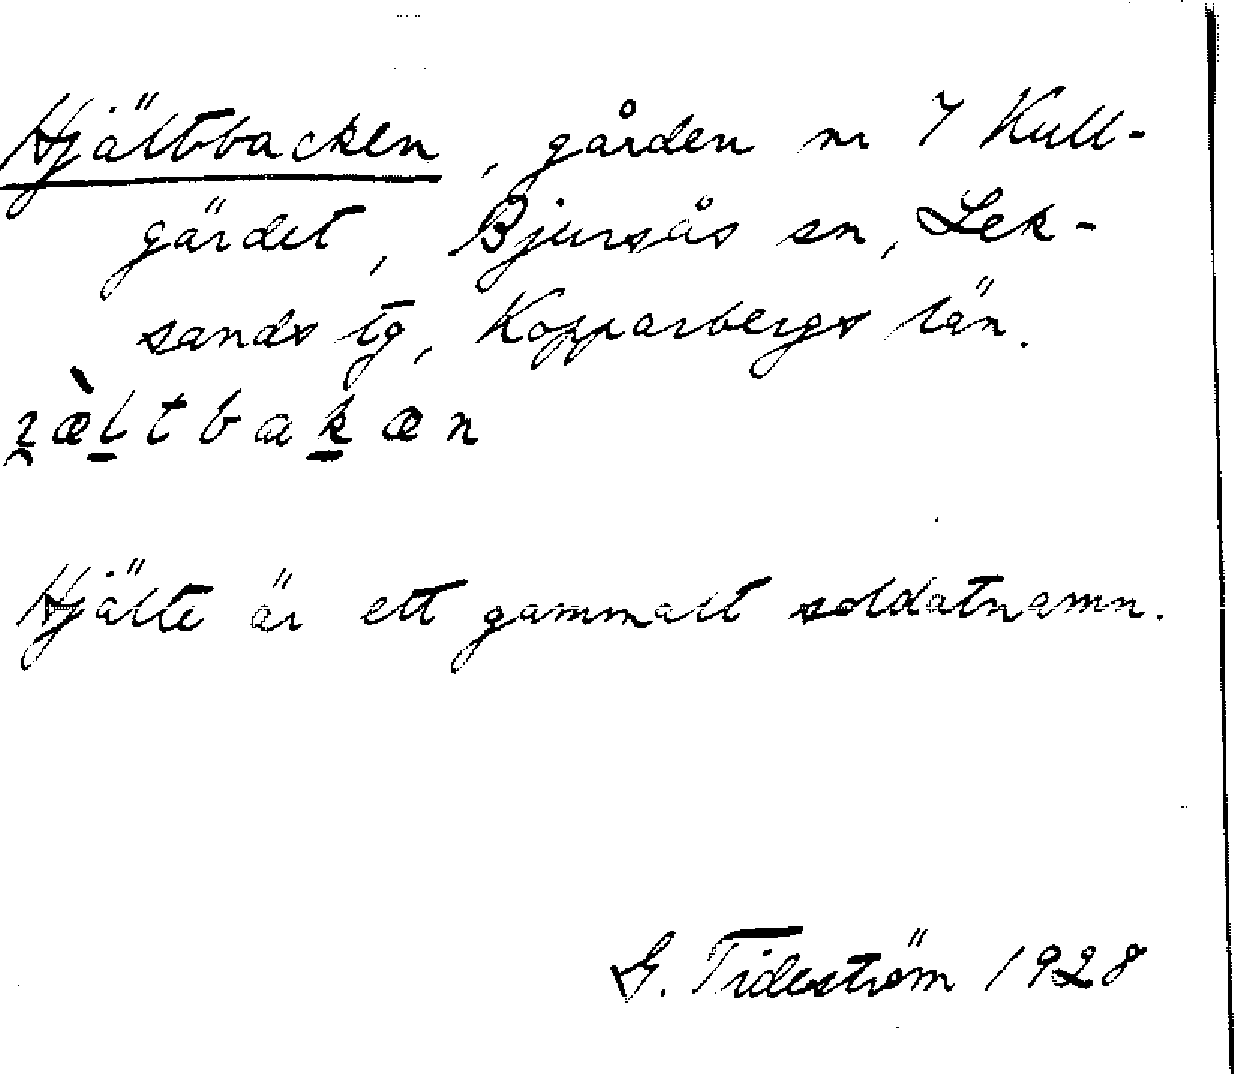 Hjältbacken, gården nr 7 Kull-
gärdet, Bjursås sn, Lek-
sands tg, Kopparbergs län.
Hjälte är ett gammalt soldatnamn.
G. Tideström 1928